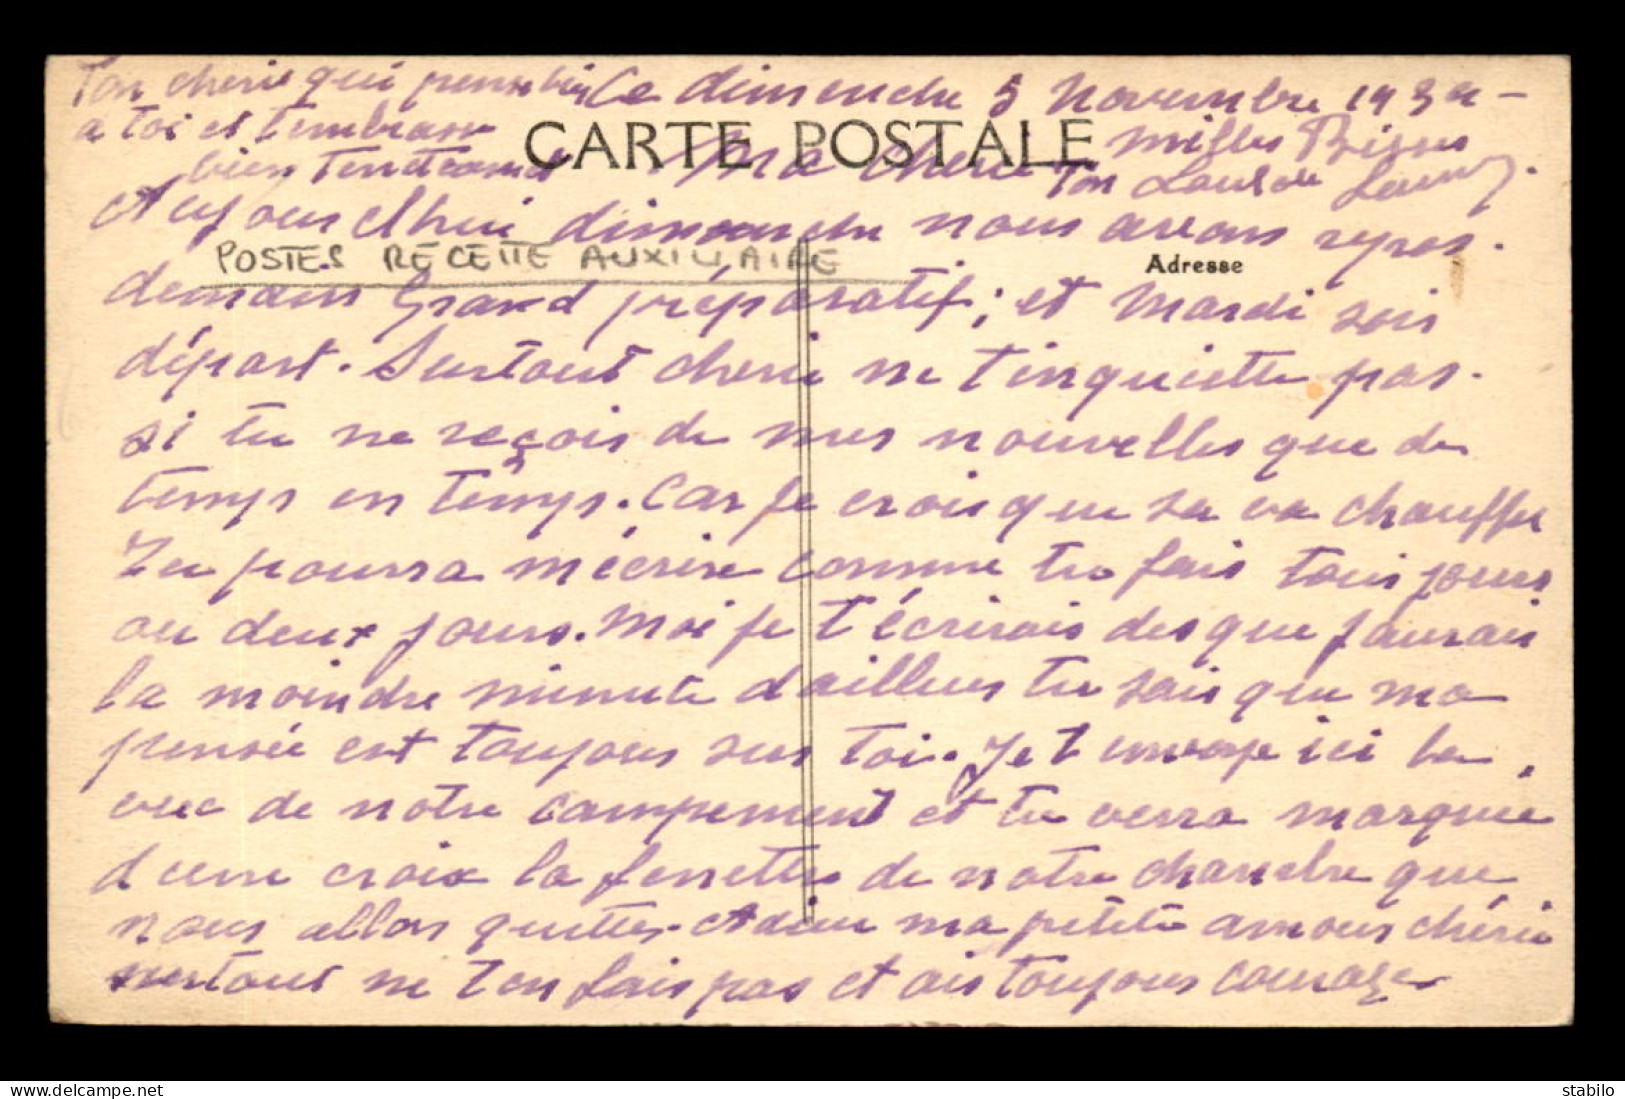 Ton cheri qui pense bien
a toi et t'embrasse
bien tendrement
Le dimenche 5 Novembre 1939
CARTE POSTALE
Milles Bises
Ma cherie
Ton Loulou
Aujourd'hui dimenche nous avons repos.
POSTES RECETTE AUXILIAIRE
Adresse
demain Grand préparatif; et Mardi soir
départ. Surtout cherie ne t'inquiette pas.
si tu ne reçois de mes nouvelles que de
temps en temps. Car je crois que sa va chauffer
Tu pourra m'écrire comme tu fais tous jours
ou deux jours. Moi je t'écrirais des que j'aurais
la moindre minute d'ailleurs tu sais que ma
pensée est toujours sur toi. Je t'envoye ici la
vue de notre campement et tu verra marquée
d'une croix la fenettre de notre chambre que
nous allons quitter. Adieu ma petite amour chérie
surtout ne t'en fais pas et ais toujours courage
delcampe.net
stabilo